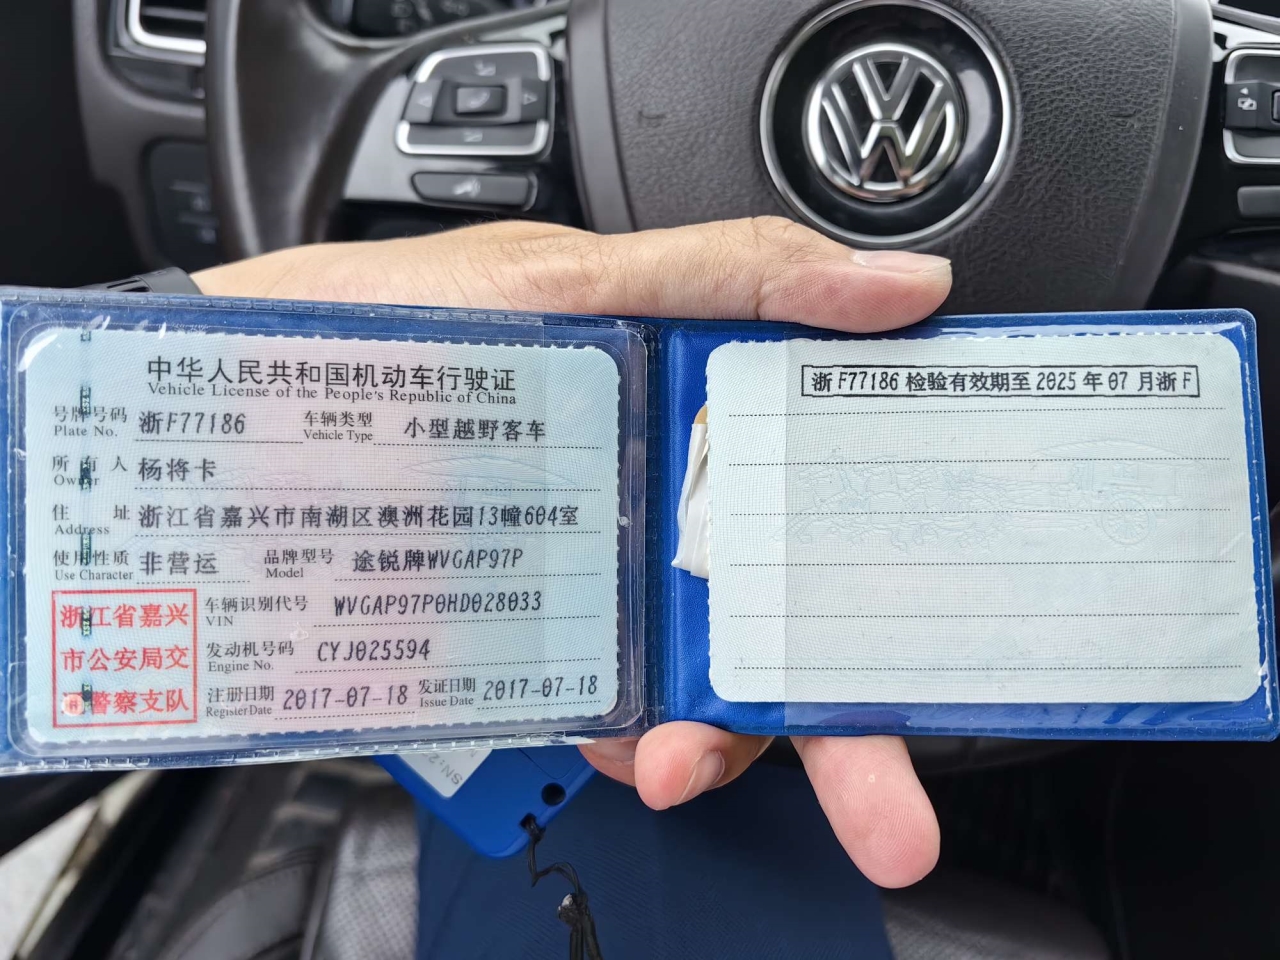 中华人民共和国机动车行驶证
Vehicle License of the People's Republic of China
号牌号码 浙F77186 车辆类型 小型越野客车
Plate No. Vehicle Type
所有人 杨将卡
Owner
住址 浙江省嘉兴市南湖区澳洲花园13幢604室
Address
使用性质 非营运 品牌型号 途锐牌WVGAP97P
Use Character Model
车辆识别代号 WVGAP97P0HD028033
VIN
发动机号码 CYJ025594
Engine No.
注册日期 2017-07-18 发证日期 2017-07-18
Register Date Issue Date
浙江省嘉兴
市公安局交
通警察支队
浙F77186检验有效期至2025年07月浙F
SN:2